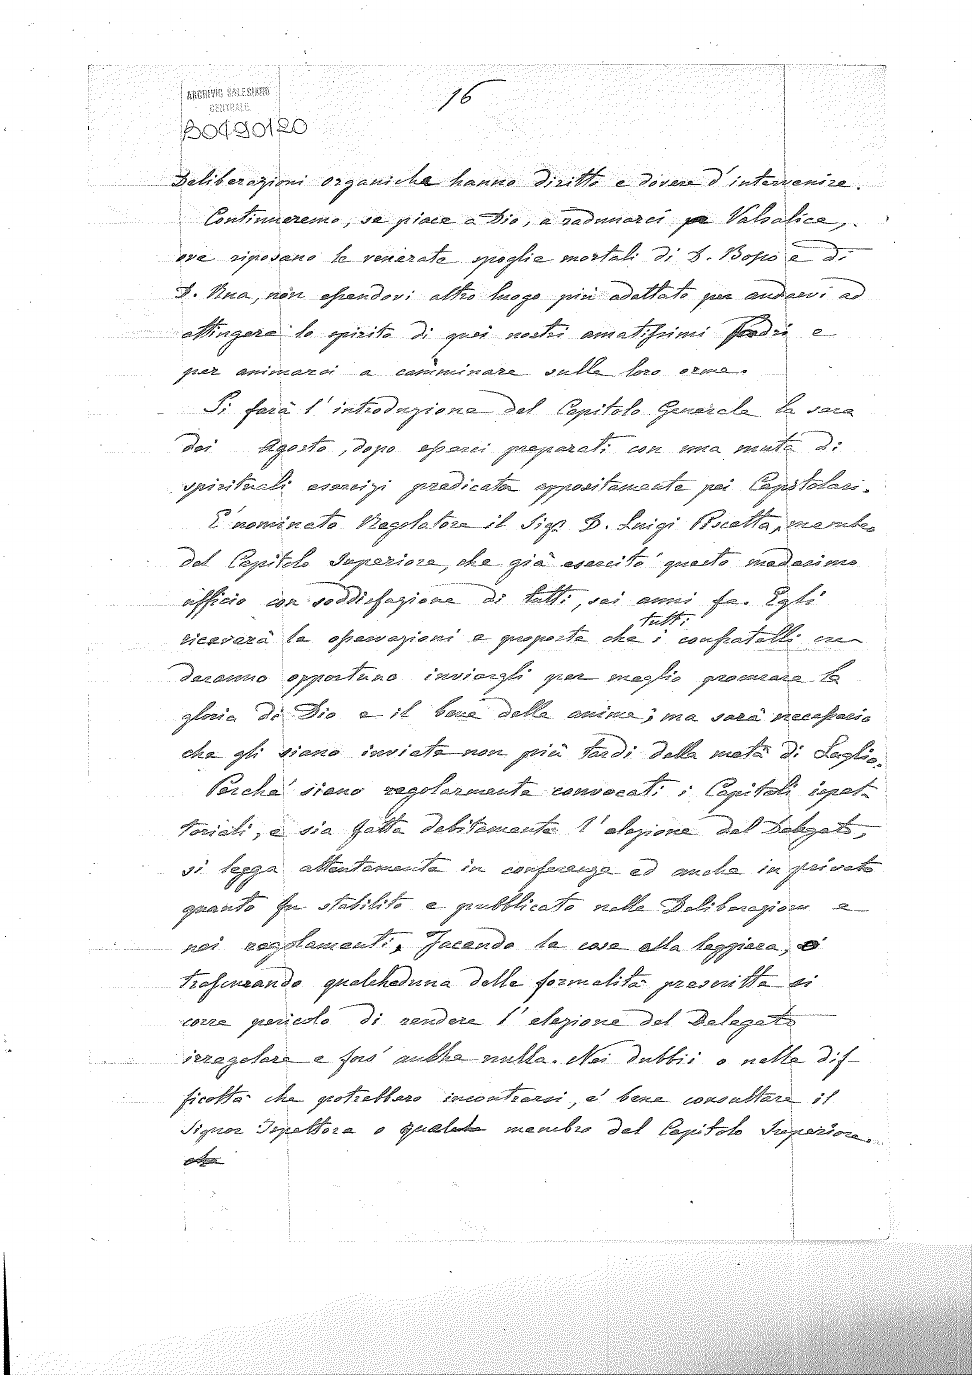 16
ARCHIVIO SALESIANO
CENTRALE
B0490120
Deliberazioni organiche hanno diritto e dovere d'intervenire.
Continueremo, se piace a Dio, a radunarci Valsalice,
ove riposano le venerate spoglie mortali di D. Bosco e di
D. Rua, non essendovi altro luogo più adattato per andarvi ad
attingere lo spirito di quei nostri amatissimi Padri e
per animarci a camminare sulle loro orme.
Si farà l'introduzione del Capitolo Generale la sera
dei Agosto, dopo esserci preparati con una muta di
spirituali esercizi predicata appositamente pei Capitolari.
È nominato Regolatore il Sig. D. Luigi Piscetta, membro
del Capitolo Superiore, che già esercitò questo medesimo
ufficio con soddisfazione di tutti, sei anni fa. Egli
riceverà le osservazioni e proposte che tutti i confratelli cre
deranno opportuno inviargli per meglio procurare la
gloria di Dio e il bene delle anime; ma sarà necessario
che gli siano inviate non più tardi della metà di Luglio.
Perché siano regolarmente convocati i Capitoli ispet
toriali, e sia fatta debitamente l'elezione del Delegato,
si legga attentamente in conferenza ed anche in privato
quanto fu stabilito e pubblicato nelle Deliberazioni e
nei regolamenti. Facendo le cose alla leggiera, o
trascurando qualcheduna delle formalità prescritte si
corre pericolo di rendere l'elezione del Delegato
irregolare e fors'anche nulla. Nei dubbii o nelle dif
ficoltà che potrebbero incontrarsi, è bene consultare il
Signor Ispettore o qualche membro del Capitolo Superiore.
che